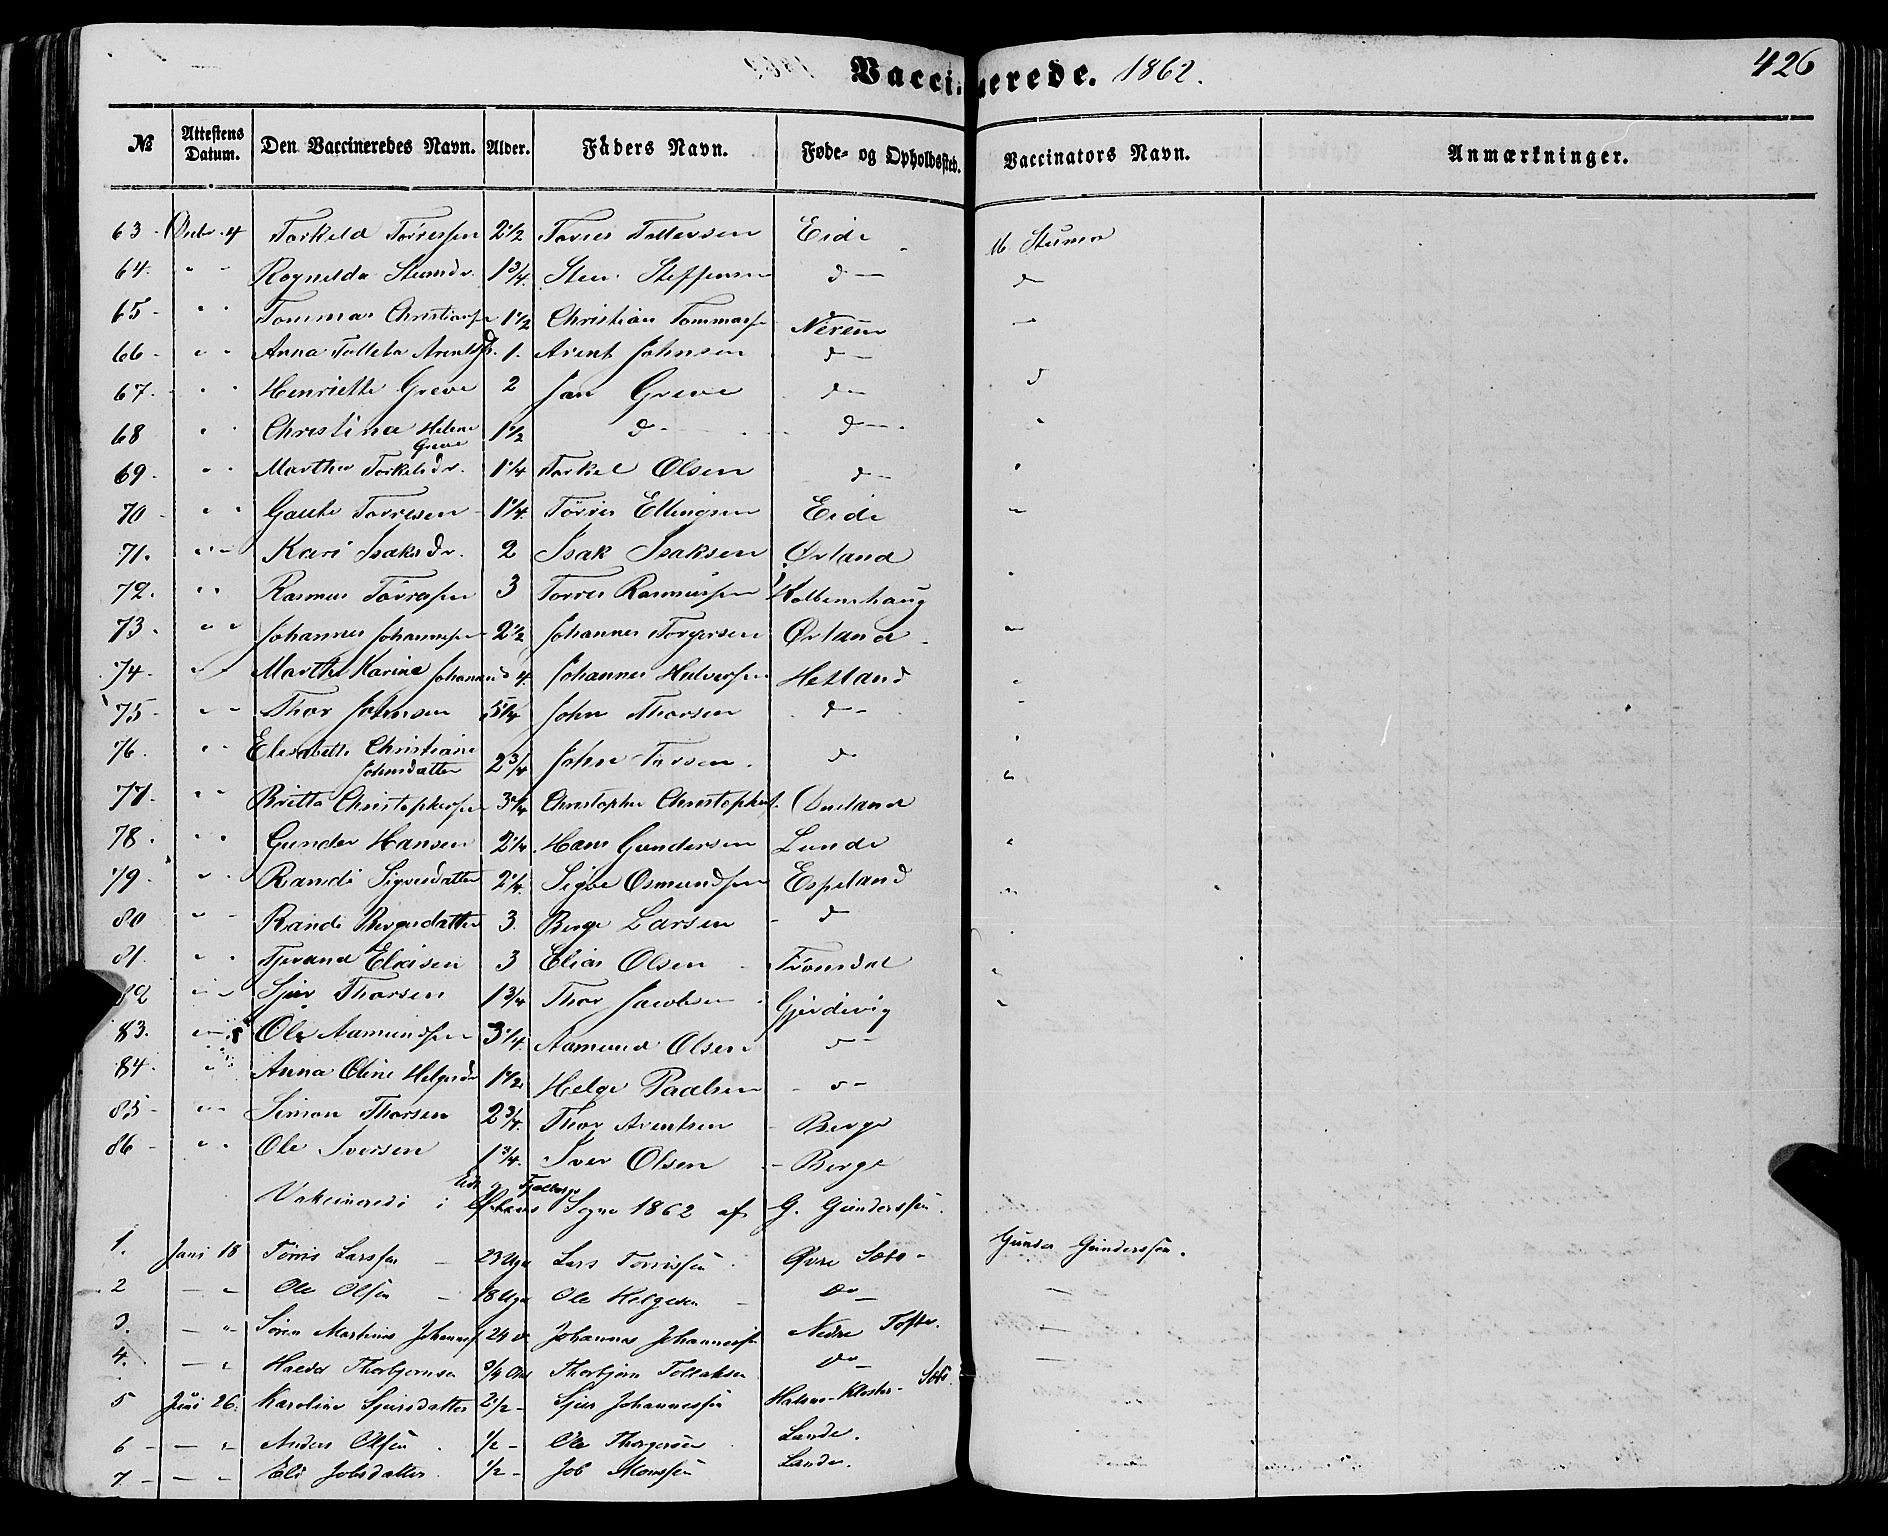 Vaccinerede. 1862.
426
№ Attestens Datum. Den Vaccineredes Navn. Alder. Faders Navn. Føde- og Opholdssted. Vaccinators Navn. Anmærkninger.
63 - Octbr. 4 Torkeld Törresen 2 1/2 Torres Tollevsen Eide
64. " " Steensdr. 1 3/4. Sten Steffensen d —
65 - " " Tommas Christiansen 1 1/2 Christian Tommasen Nereim —
66 - " " Anna Arentsd. 1. Arent Johnsen d —
67. " " Henriette Greve 2 Jan Greve d — d
68 " " Christina Helene Greve 1 1/2 d - d — "
69. " " Marthe Torkelsdr. 1 1/4 Torkel Olsen d — "
70 " " Gaute Torresen 1 1/4. Törres Ellingsen Eide "
71. " " Kari Isaksdr. 2 Isak Isaksen Ørland
72. " " Rasmus Törresen 3 Torres Rasmussen Kolbenshaug "
73. " " Johannes Johannesen 2 1/2 Johannes Torgersen Ørland "
74. " " Marthe Karine Johannesd 4. Johannes Halversen Hetland "
75 - " " Thor Johnsen 5 1/4 John Thorsen d - "
76. " " Elisabeth Christiane Johnsdatter 2 3/4 John Torsen. d "
77. " " Britta Christophersen 3 1/4 Christopher Christophers. "
78. " " Gunder Hansen 2 1/4. Hans Gundersen Lunde "
79. " " Randi Sigvesdatter 2 1/4. Sigve Osmundsen Espeland "
80 " " Randi Bergesdatter 3. Berge Larsen - d "
81. " " Tjerand Eliasen 3 Elias Olsen - "
82 " " Sjur Thorsen 1 3/4 Thor Jacobsen Gjerdevig "
83. " 5 Ole Aamundsen 3 1/4. Aamund Olsen d -
84. " " Anna Oline Helgesdr 1 1/2 Helge Paalsen - d -
85 - " " Simon Thorsen 2 3/4. Thor Arentsen - Berge
86 - " " Ole Iversen 1 3/4. Iver Olsen - Berge
Vakcinerede i Eid Fjelberg Sogne 1862 af G. Gunderssen.
1. Juni 18 Törris Larssen - 23 Uger Lars Torrissen. Øvre Sæbø - Gunder Gunderssen.
2 — " Ole Olsen - 18 Uger Ole Helgesen - Do — —
3. — " Søren Martinus Johannes. 24 d Johannes Johannessen Nedre Tofte. —
4. — " Thorbjornsen 3/4 Thorbjørn Tollaksen Do — —
5 Juni 26. Karoline Sjursdatter 2 1/2 - Sjur Johannessen Halsnø Kloster - Sæbø
6 - — " Anders Olsen. 1/2 - Ole Thorgersen. Lande.
7 - — " Eli Jobsdatter. 1/2 - Job Monssen Lander.